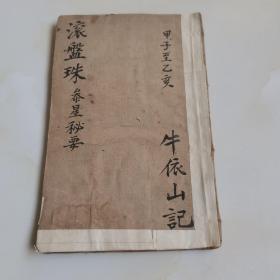 甲子至乙亥
牛依山記
滚盤珠
叅星秘要